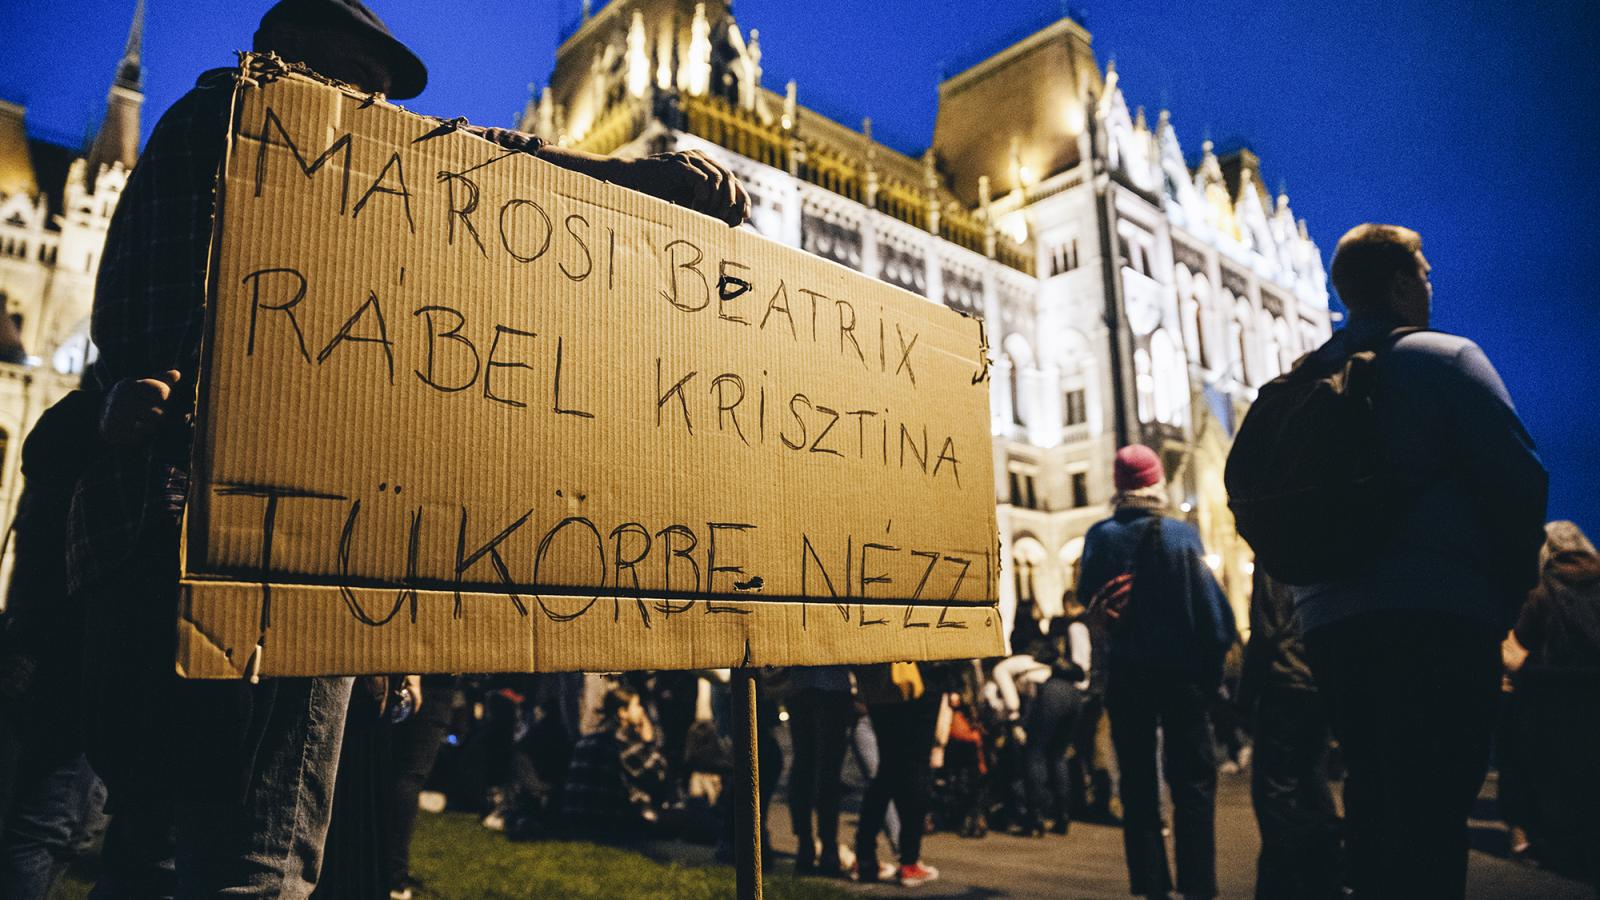 MÁROSI BEATRIX
RÁBEL KRISZTINA
TÜKÖRBE NÉZZ!